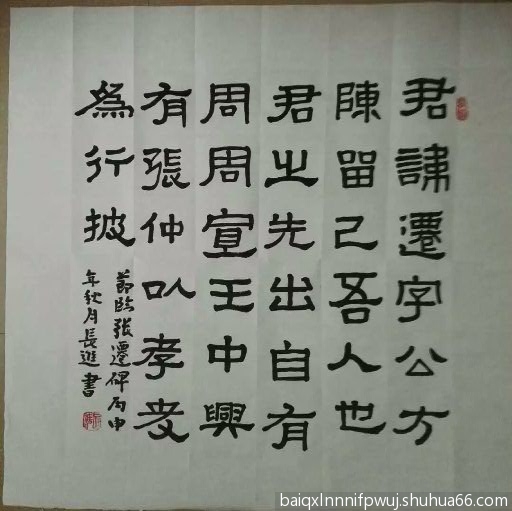 君諱遷字公方
陳留己吾人也
君之先出自有
周周宣王中興
有張仲以孝友
為行披
節臨張遷碑丙申
年秋月長進書
baiqxlnnnifpwuj.shuhua66.com